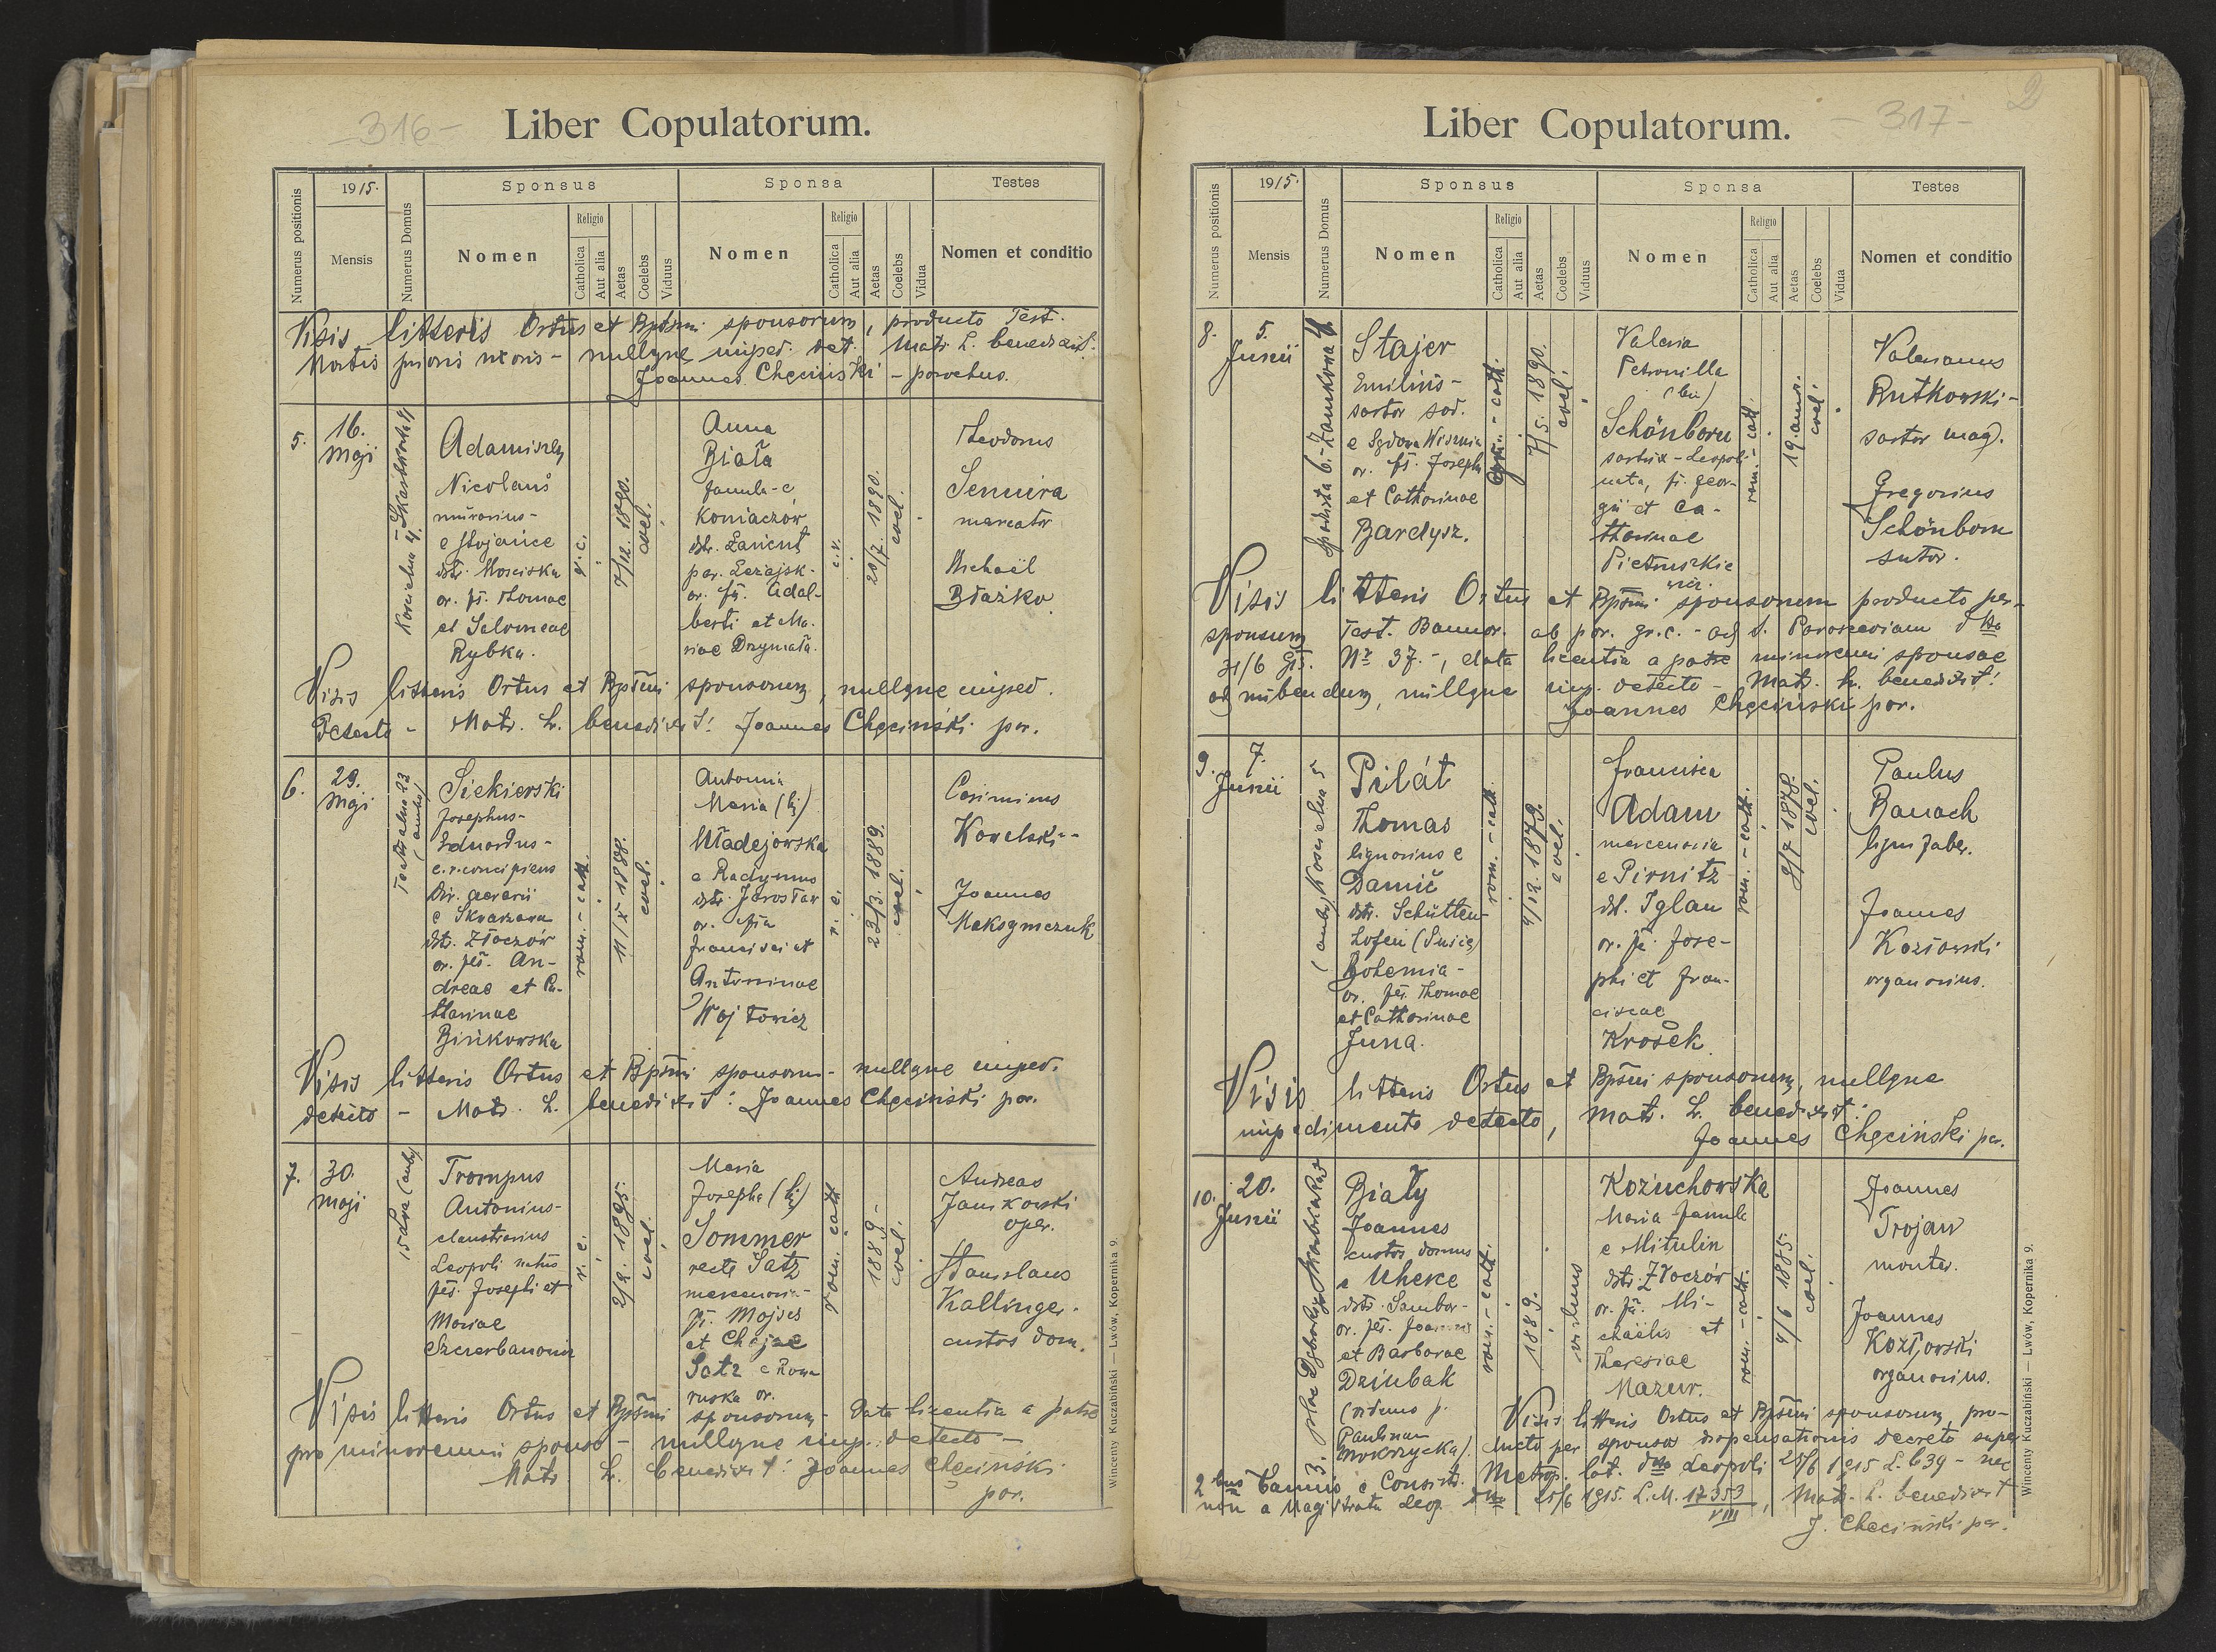 -316-
Liber Copulatorum.
Numerus positionis
1915.
Mensis
Numerus Domus
Sponsus
Nomen
Religio
Catholica
Aut alia
Aetas
Coelebs
Viduus
Sponsa
Nomen
Religio
Catholica
Aut alia
Aetas
Coelebs
Vidua
Testes
Nomen et conditio
Visis litteris Ortus et Bptsmi sponsorum, producto Test.
Mortis prioris uxoris - nullque imped. det. Matr. L. benedixit:
Joannes Chęciński - parochus.
5.
16.
Maji
Adamiszly
Nicolaus
murarius -
e Stojańce
dstr. Mosciska
or. fs. Thomae
et Salomeae
Rybka.
g. c.
7/12. 1890.
coel.
Anna
Biała
famula - e
Koniaczow
dstr. Łańcut
par. Leżajsk -
or. fa. Adal-
berti et Ma-
riae Drzymała.
20/7. 1890.
coel.
Theodorus
Semira
mercator
Michaël
Błażko
Visis litteris Ortus et Bptsmi sponsorum, nullque imped.
Detecto - Matr. L. benedixit: Joannes Chęciński par.
6.
29.
Maji
Teatralna 23
(ambo)
Siekierski
Josephus -
Eduardus -
c. r. concipiens
Dir. aerarii
e Skwarzawa
dstr. Złoczów
or. fs. An-
dreae et Ca-
tharinae
Bińkowska
rom. - cath.
11/X 1888.
coel.
Antonia
Maria (bi)
Władejowska
e Radymno
dstr. Jarosław
or. fia
Francisci et
Antoninae
Wojtowicz
r. c.
23/3. 1889.
coel.
Casimirus
Kowelski -
Joannes
Maksymczuk
Visis litteris Ortus et Bptsmi sponsorum - nullque imped.
detecto - Matr. L. benedixit: Joannes Chęciński par.
7.
30.
Maji
Trompus
Antonius -
claustrarius
Leopoli natus
fs. Josephi et
Mariae
Szczerbanowicz
r. c.
2/2. 1895.
coel.
Maria
Josepha (bi)
Sommer
recte Satz
mercenaria -
fi. Mojses
et Chajae
Satz e Rawa
ruska or.
rom. cath
1889 -
coel.
Andreas
Jankowski
oper.
Stanislaus
Kallinger
custos dom.
Visis litteris Ortus et Bptsmi sponsorum - Data licentia a patre
pro minorenni sponso - nullque imp. detecto -
Matr. L. benedixit: Joannes Chęciński
par.
Wincenty Kuczabiński — Lwów, Kopernika 9.
Liber Copulatorum.
-317-
2
Numerus positionis
1915.
Mensis
Numerus Domus
Sponsus
Nomen
Religio
Catholica
Aut alia
Aetas
Coelebs
Viduus
Sponsa
Nomen
Religio
Catholica
Aut alia
Aetas
Coelebs
Vidua
Testes
Nomen et conditio
8.
5.
Junii
Stajer
Emilius -
sartor sod.
e Sądowa Wisznia
or. fs. Josephi
et Catharinae
Bardysz.
7/5. 1890.
coel.
Valeria
Petronilla
(bi)
Schönborn
sartrix - Leopoli
nata, fi. Geor-
gii et Ca-
tharinae
Pietruszkie
wicz.
rom. - cath.
19. ann.
coel.
Valerianus
Rutkowski -
sartor mag.
Gregorius
Schönborn
sutor.
Visis litteris Ortus et Bptsmi sponsorum producto per
sponsum Test. Bannor. ab par. gr. c. - ad S. Parasceviam dtto
Nr 37. -, data licentia a patre minorenni sponsae
ad nubendum, nullque imp. detecto - Matr. L. benedixit:
Joannes Chęciński par.
9.
7.
Junii
(ambo) Kościelna 5
Pilát
Thomas
lignarius e
Damič
dstr. Schütten-
hofen (Sušice)
Bohemia -
or. fs. Thomae
et Catharinae
Juna.
rom. - cath.
4/12. 1879.
coel.
Francisca
Adam
mercenaria
e Pirnitz
dst. Iglau
or. fa. Jose-
phi et Fran-
ciscae
Krošek
rom. - cath.
9/7 1878.
coel.
Paulus
Banach
lign faber.
Joannes
Kozłowski
organarius.
Visis litteris Ortus et Bptsmi sponsorum, nullque
impedimento detecto, Matr. L. benedixit:
Joannes Chęciński par.
10.
20.
Junii
Biały
Joannes
custos domus
e Uherce
dstr. Sambor -
or. fs. Joannis
et Barbarae
Dziubak
(viduus p.
Paulinam
Mokrzycką).
rom. - cath.
1889.
viduus
Kozuchowska
Maria - famula
e Mitulin
dstr. Złoczów
or. fa. Mi-
chaëlis et
Theresiae
Mazur.
rom. - cath.
4/6 1885.
coel.
Joannes
Trojan
monter.
Joannes
Kozłowski
organarius.
Visis litteris Ortus et Bptsmi sponsorum, pro-
ducto per sponsos dispensationis decreto super
2bus bannis e Consist. Metrop. lat. dtto Leopoli 25/6 1915 L. 639 - nec
non a Magistratu Leop. dtto 25/6 1915. L. M. 17353/VIII, Matr. L. benedixit
J. Chęciński par.
Wincenty Kuczabiński — Lwów, Kopernika 9.